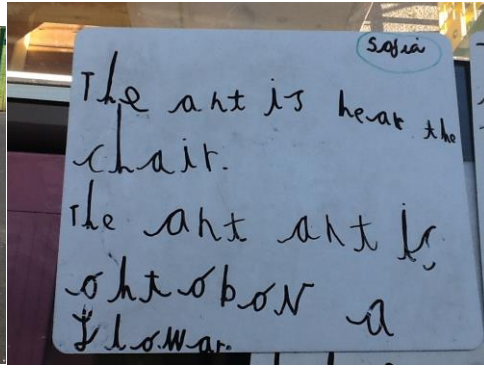 Sofia
The ant is near the
chair.
The ant ant is
ontobov a
flowar.